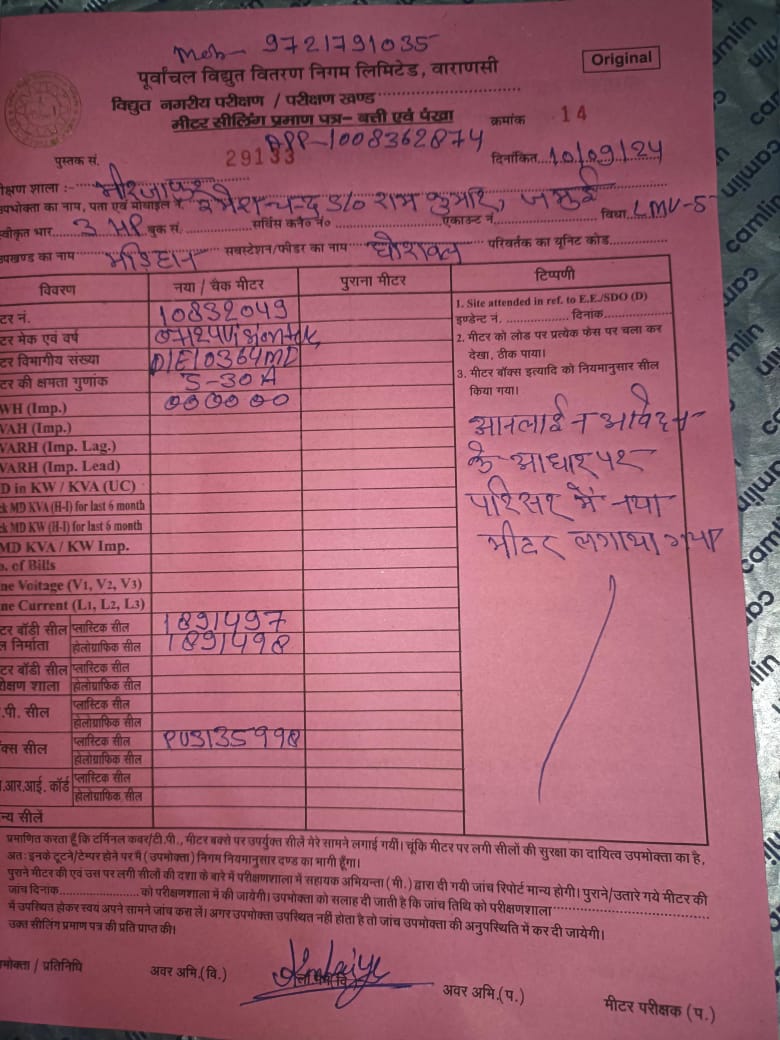 Mob- 9721791035
Original
पूर्वांचल विद्युत वितरण निगम लिमिटेड, वाराणसी
विद्युत नगरीय परीक्षण / परीक्षण खण्ड
मीटर सीलिंग प्रमाण पत्र- बत्ती एवं पंखा क्रमांक 14
APP-1008362874
पुस्तक सं. 29133 दिनांकित 10/09/24
रीक्षण शाला :- मीरजापुर
उपभोक्ता का नाम, पता एवं मोबाइल नं रमेश चन्द S/o राम कुमार, जमुई
वीकृत भार 3 HP बुक सं. सर्विस कनै० नं० एकाउन्ट नं. विधा LMV-5
उपखण्ड का नाम मड़िहान सबस्टेशन/फीडर का नाम घोरावल परिवर्तक का यूनिट कोड
विवरण नया / चैक मीटर पुराना मीटर टिप्पणी
टर नं. 10832049
टर मेक एवं वर्ष
टर विभागीय संख्या
टर की क्षमता गुणांक 5-30A
WH (Imp.) 000000
VAH (Imp.)
VARH (Imp. Lag.)
VARH (Imp. Lead)
D in KW / KVA (UC)
k MD KVA (H-I) for last 6 month
k MD KW (H-I) for last 6 month
MD KVA / KW Imp.
. of Bills
ne Voitage (V1, V2, V3)
ne Current (L1, L2, L3)
टर बॉडी सील प्लास्टिक सील 1891497
ल निर्माता होलोग्राफिक सील 1891498
टर बॉडी सील प्लास्टिक सील
रीक्षण शाला होलोग्राफिक सील
.पी. सील प्लास्टिक सील
होलोग्राफिक सील
क्स सील प्लास्टिक सील
होलोग्राफिक सील
.आर.आई. कॉर्ड प्लास्टिक सील
होलोग्राफिक सील
न्य सीलें
1. Site attended in ref. to E.E./SDO (D)
इण्डेन्ट नं. दिनांक
2. मीटर को लोड पर प्रत्येक फेस पर चला कर
देखा, ठीक पाया।
3. मीटर बॉक्स इत्यादि को नियमानुसार सील
किया गया।
आनलाईन आवेदन
के आधार पर
परिसर में नया
मीटर लगाया गया
प्रमाणित करता हूँ कि टर्मिनल कवर/टी.पी., मीटर बक्से पर उपर्युक्त सीलें मेरे सामने लगाई गयीं। चूंकि मीटर पर लगी सीलों की सुरक्षा का दायित्व उपभोक्ता का है,
अतः इनके टूटने/टेम्पर होने पर मैं (उपभोक्ता) निगम नियमानुसार दण्ड का भागी हूँगा।
पुराने मीटर की एवं उस पर लगी सीलों की दशा के बारे में परीक्षणशाला में सहायक अभियन्ता (मी.) द्वारा दी गयी जांच रिपोर्ट मान्य होगी। पुराने/उतारे गये मीटर की
जांच दिनांक को परीक्षणशाला में की जायेगी। उपभोक्ता को सलाह दी जाती है कि जांच तिथि को परीक्षणशाला
में उपस्थित होकर स्वयं अपने सामने जांच करा लें। अगर उपभोक्ता उपस्थित नहीं होता है तो जांच उपभोक्ता की अनुपस्थिति में कर दी जायेगी।
उक्त सीलिंग प्रमाण पत्र की प्रति प्राप्त की।
भोक्ता / प्रतिनिधि अवर अभि.(वि.) अवर अभि.(प.) मीटर परीक्षक (प.)
camlin
camlin
camlin
camlin